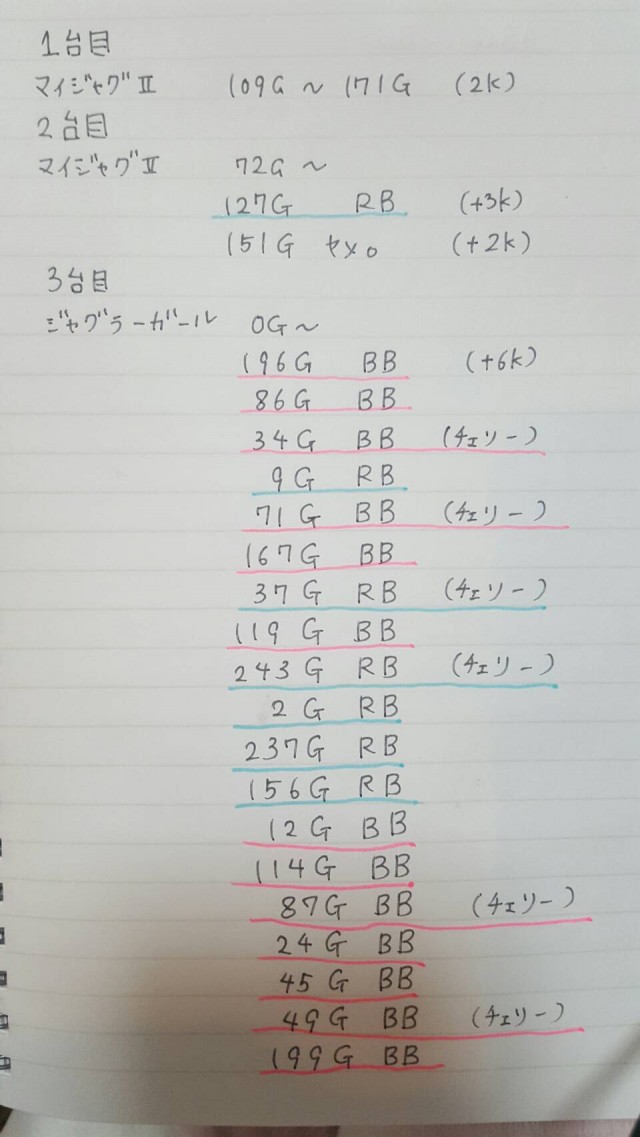 1台目
マイジャグⅡ 109G ~ 171G (2k)
2台目
マイジャグⅡ 72G ~
127G RB (+3k)
151G ヤメ。 (+2k)
3台目
ジャグラーガール 0G~
196G BB (+6k)
86G BB
34G BB (チェリー)
9G RB
71G BB (チェリー)
167G BB
37G RB (チェリー)
119G BB
243G RB (チェリー)
2G RB
237G RB
156G RB
12G BB
114G BB
87G BB (チェリー)
24G BB
45G BB
49G BB (チェリー)
199G BB